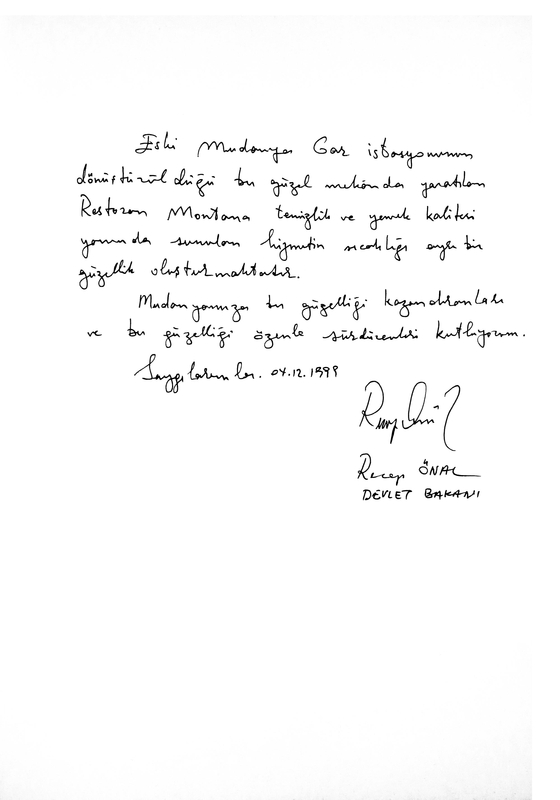 Eski Mudanya Gar istasyonunun
dönüştürüldüğü bu güzel mekânda yaratılan
Restoran Montana temizlik ve yemek kalitesi
yanında sunulan hizmetin sıcaklığı ayrı bir
güzellik oluşturmaktadır.
Mudanyamıza bu güzelliği kazandıranları
ve bu güzelliği özenle sürdürenleri kutluyorum.
Saygılarımla. 04.12.1999
Recep ÖNAL
DEVLET BAKANI